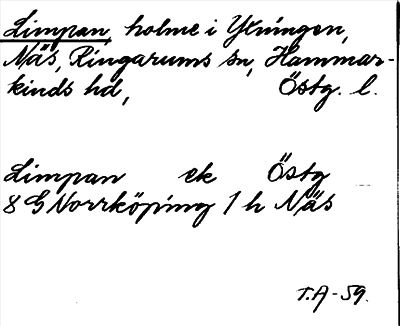 Limpan, holme i Yxningen,
Näs, Ringarums sn, Hammar-
kinds hd, Östg. l.
Limpan ek Östg
8 G Norrköping 1 h Näs
T.A-59.